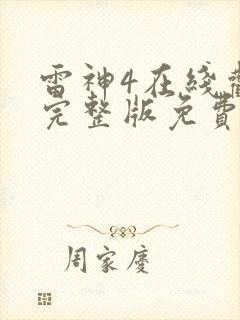 雷神4在线
完整版免費
周家慶